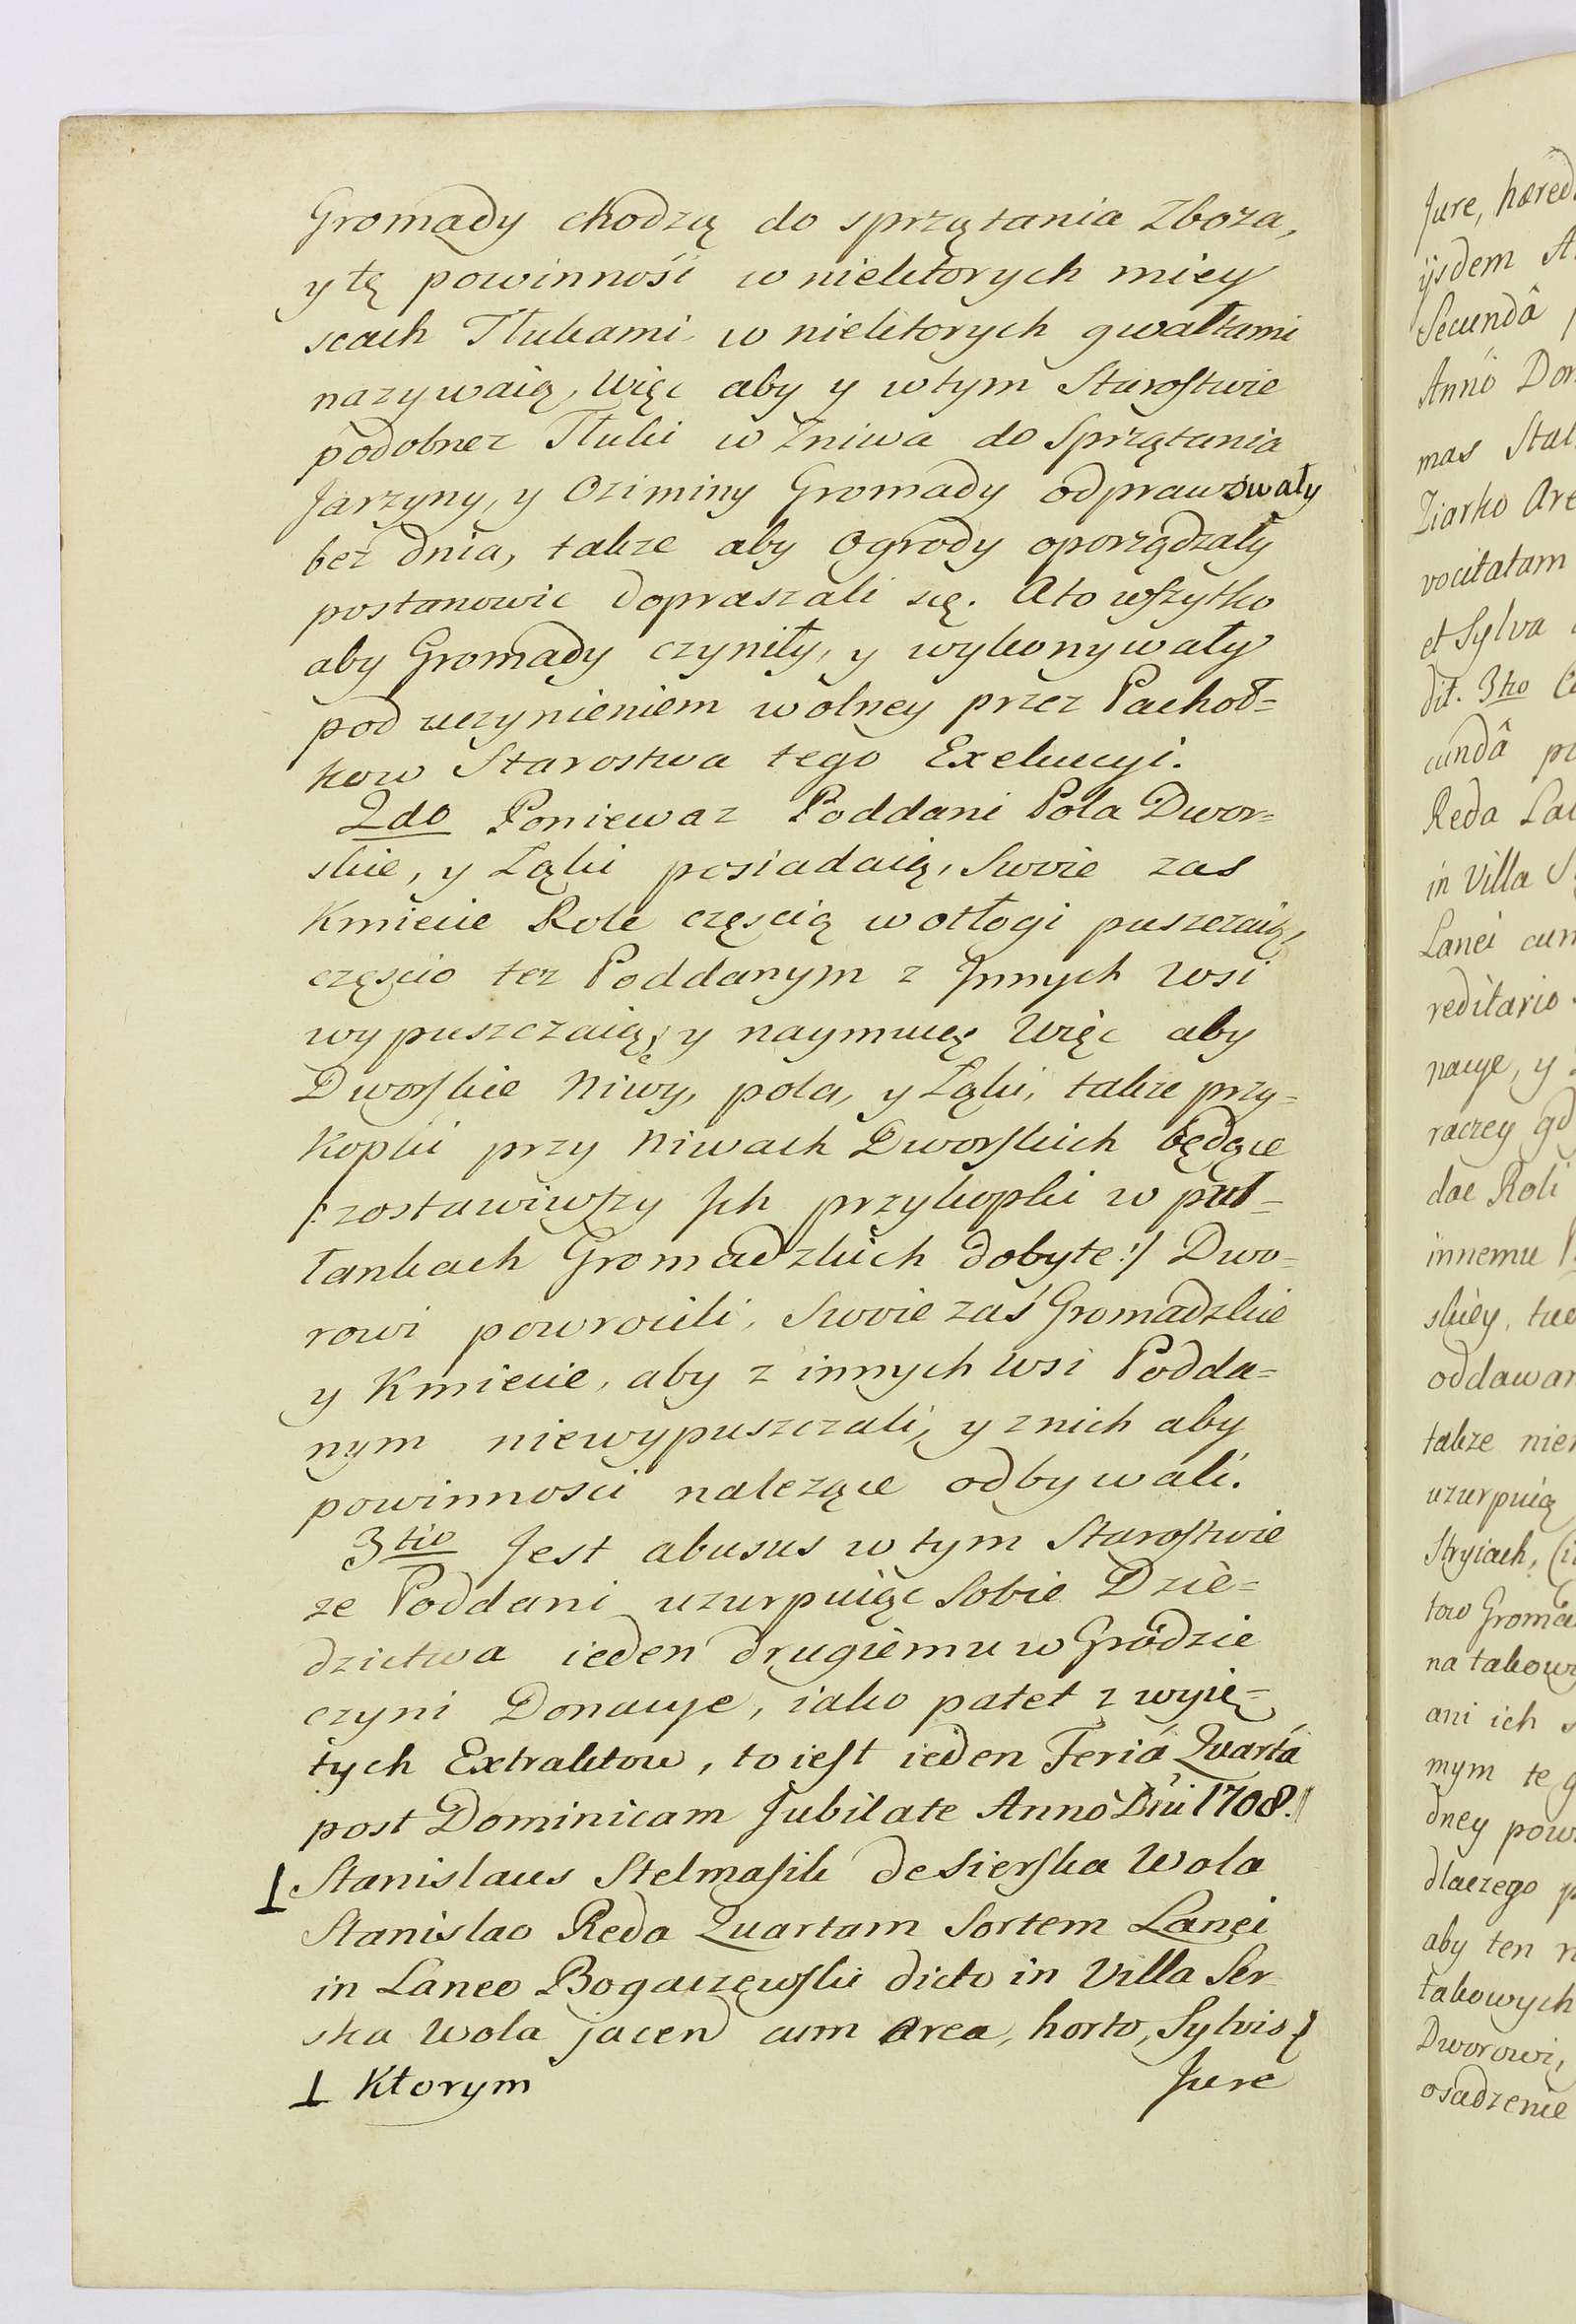 Gromady chodzą do sprzątania Zboza,
y tę powinność w niektorych miey
scach Tłukami w niektorych gwałtami
nazywaią, Więc aby y w tym Starostwie
podobnez Tłuki w Zniwa do Sprzątania
Jarzyny, y Oziminy Gromady odprawowały
bez dnia, takze aby Ogrody oporządzały
postanowic dopraszali się. A to wszytko
aby Gromady czyniły, y wykonywały
pod uczynieniem wolney przez Pachoł=
kow Starostwa tego Exekucyi.
2do Poniewaz Poddani Pola Dwor=
skie, y Łąki posiadaią, Swoie zas
Kmiecie Role częscią w otłogi puszczaią,
częscio tez Poddanym z Jnnych Wsi
wypuszczaią, y naymuią Więc aby
Dworskie Niwy, pola, y Łąki, takze przy=
kopki przy Niwach Dworskich będące
/: zostawiwszy Jch przykopki w puł=
łankach Gromadzkich dobyte :/ Dwo=
rowi powrocili, Swoie zaś Gromadzkie
y Kmiecie, aby z innych Wsi Podda=
nym niewypuszczali, y z nich aby
powinnosci nalezące odbywali.
3tio Jest abusus w tym Starostwie
ze Poddani uzurpuiąc Sobie Dzie=
dzictwa ieden drugiemu w Grodzie
czyni Donacye, iako patet z wyię=
tych Extraktow, to iest ieden Feriá Quartá
post Dominicam Jubilate Anno Dni 1708.
⊥ Stanislaus Stelmasik de Sierska Wola
Stanislao Reda Quartam Sortem Lanei
in Laneo Bogaczewski dicto in Villa Ser
ska Wola jacen cum Area, horto, Sylvis
⊥ Ktorym Jure
Jure, hæred
ijsdem
Secundâ
Annô Dom
mas
Ziarko Are
vocitatam
et Sylva
dit. 3tio
cundâ
Reda
in Villa
Lanei cum
reditario
nacye, y
raczey
dae Roli
innemu
skiey,
oddawan
takze
uzurpuią
Stryiach,
tow Groma
na takow
ani ich
mym te
dney pow
dlaczego
aby ten
takowych
Dworowi,
osadzenie